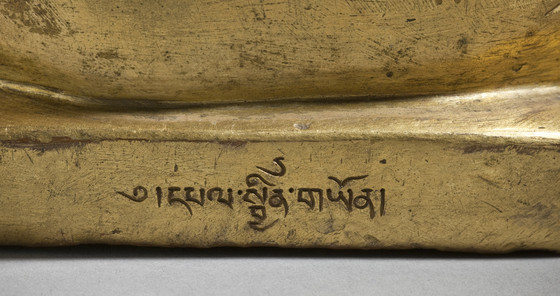 ༧།དཔལ་སྦྱིན་གཡོན།